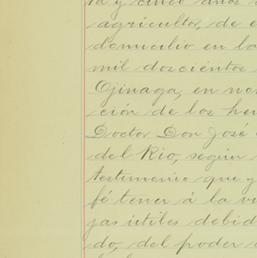 ta y cinco años
agricultor, de e
domicilio en la
mil doscientos
Ojinaga, en nom
ción de los her
Doctor Don José
del Rio, según
testimonio que y
fé tener á la vi
jas útiles debid
do, del poder